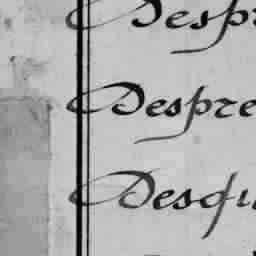 Despr
Despre
Desqu